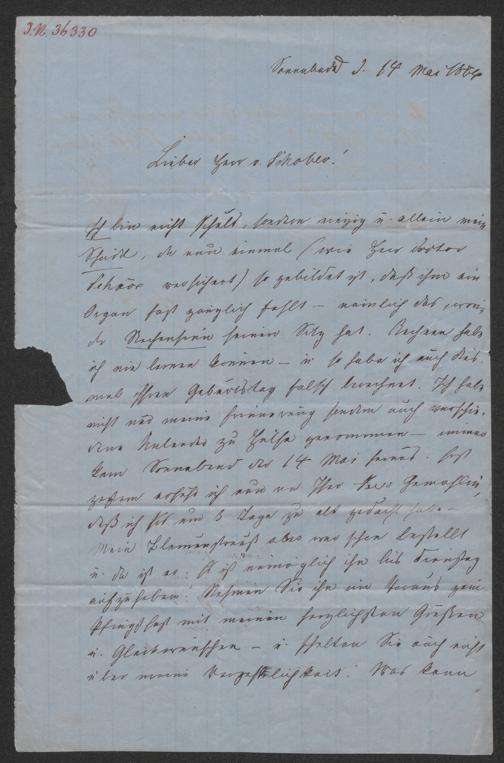 J.N. 36330
Sonnabend d. 14 Mai 1864
Lieber Herr v. Schober!
Ich bin nicht Schuld, sondern einzig u. allein mein
Schädel, der nun einmal (wie Herr Doctor
versichert) so gebildet ist, daß ihm ein
Organ fast gänzlich fehlt – nämlich das, worin
der Rechensinn seinen Sitz hat. Rechnen hab
ich nie lernen können – u. so habe ich auch dies
mal Ihren Geburtstag falsch berechnet. Ich habe
nicht nur meine Erinnerung sondern auch verschie-
dene Kalender zu Hülfe genommen – immer
kam Sonnabend der 14 Mai heraus. Erst
gestern erfuhr ich nun von Ihrer Gemahlin,
daß ich Sie um 3 Tage zu alt gemacht habe –
Mein Blumenstrauß aber war schon bestellt
u. da ist er. Es ist unmöglich ihn bis Dienstag
aufzuheben. Nehmen Sie ihn im Voraus zum
Pfingstfest mit meinen herzlichsten Grüßen
u. Glückwünschen – u. schelten Sie auch nicht
über meine Vergeßlichkeit. Was kann